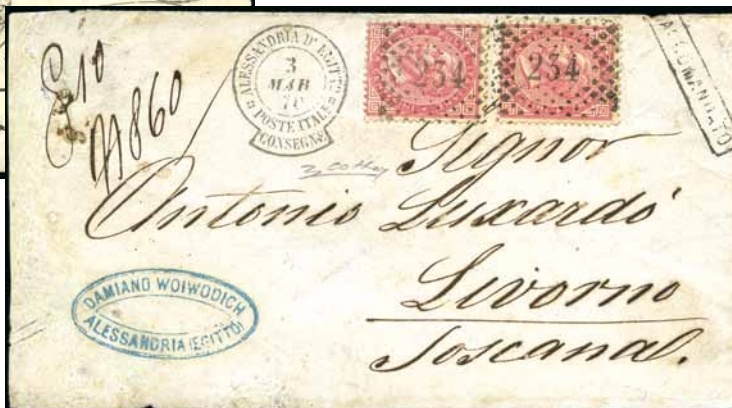 ALESSANDRIA D'EGITTO
3
MAR
70
POSTE ITALE
CONSEGNE
234
234
860
Signor
Antonio Luxardó
Livorno
Toscana.
DAMIANO WOIWODICH
ALESSANDRIA (EGITTO)